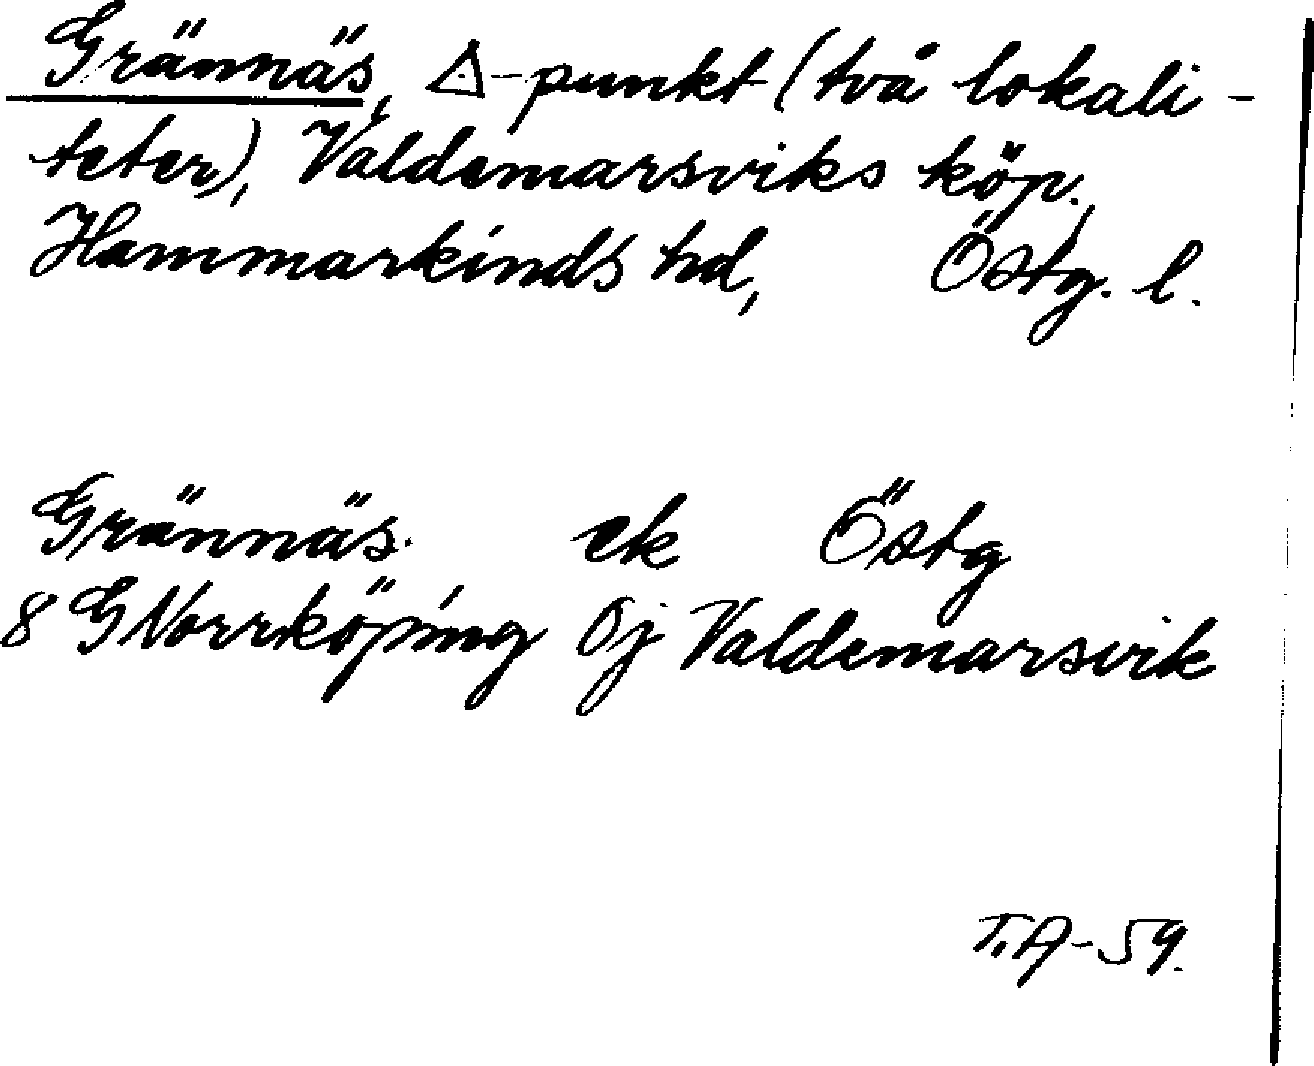 Grännäs, △-punkt (två lokali-
teter), Valdemarsviks köp.,
Hammarkinds hd, Östg. l.
Grännäs. ek Östg
8 G Norrköping 0j Valdemarsvik
T.A-59.